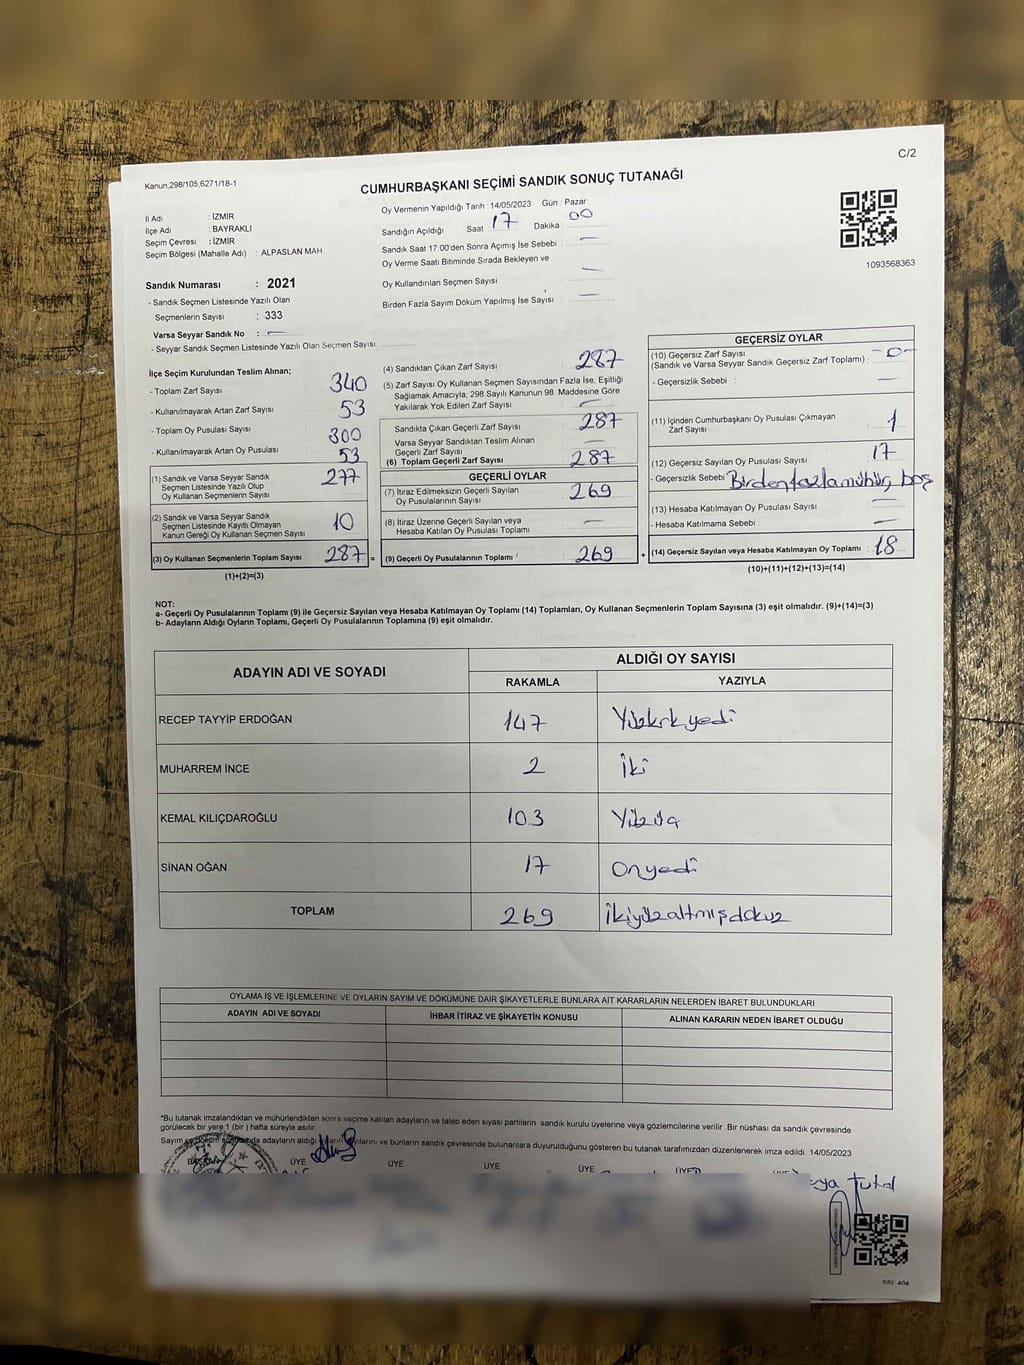 C/2
Kanun;298/105,6271/18-1
CUMHURBAŞKANI SEÇİMİ SANDIK SONUÇ TUTANAĞI
İl Adı : İZMİR
İlçe Adı : BAYRAKLI
Seçim Çevresi : İZMİR
Seçim Bölgesi (Mahalle Adı) : ALPASLAN MAH
Oy Vermenin Yapıldığı Tarih : 14/05/2023 Gün : Pazar
Sandığın Açıldığı Saat 17 Dakika 00
Sandık Saat 17:00'den Sonra Açımış İse Sebebi : —
Oy Verme Saati Bitiminde Sırada Bekleyen ve
Oy Kullandırılan Seçmen Sayısı : —
Birden Fazla Sayım Döküm Yapılmış İse Sayısı : —
1093568363
Sandık Numarası : 2021
- Sandık Seçmen Listesinde Yazılı Olan
Seçmenlerin Sayısı : 333
Varsa Seyyar Sandık No : —
- Seyyar Sandık Seçmen Listesinde Yazılı Olan Seçmen Sayısı
İlçe Seçim Kurulundan Teslim Alınan;
- Toplam Zarf Sayısı 340
- Kullanılmayarak Artan Zarf Sayısı 53
- Toplam Oy Pusulası Sayısı 300
- Kullanılmayarak Artan Oy Pusulası 53
(1) Sandık ve Varsa Seyyar Sandık
Seçmen Listesinde Yazılı Olup
Oy Kullanan Seçmenlerin Sayısı 277
(2) Sandık ve Varsa Seyyar Sandık
Seçmen Listesinde Kayıtlı Olmayan
Kanun Gereği Oy Kullanan Seçmen Sayısı 10
(3) Oy Kullanan Seçmenlerin Toplam Sayısı 287 =
(1)+(2)=(3)
(4) Sandıktan Çıkan Zarf Sayısı 287
(5) Zarf Sayısı Oy Kullanan Seçmen Sayısından Fazla İse, Eşitliği
Sağlamak Amacıyla, 298 Sayılı Kanunun 98. Maddesine Göre
Yakılarak Yok Edilen Zarf Sayısı —
Sandıkta Çıkan Geçerli Zarf Sayısı 287
Varsa Seyyar Sandıktan Teslim Alınan
Geçerli Zarf Sayısı —
(6) Toplam Geçerli Zarf Sayısı 287
GEÇERLİ OYLAR
(7) İtiraz Edilmeksizin Geçerli Sayılan
Oy Pusulalarının Sayısı 269
(8) İtiraz Üzerine Geçerli Sayılan veya
Hesaba Katılan Oy Pusulası Toplamı —
(9) Geçerli Oy Pusulalarının Toplamı 269 +
GEÇERSİZ OYLAR
(10) Geçersiz Zarf Sayısı
(Sandık ve Varsa Seyyar Sandık Geçersiz Zarf Toplamı) : -0-
- Geçersizlik Sebebi : —
(11) İçinden Cumhurbaşkanı Oy Pusulası Çıkmayan
Zarf Sayısı 1
(12) Geçersiz Sayılan Oy Pusulası Sayısı 17
- Geçersizlik Sebebi Birden fazla mühür, boş
(13) Hesaba Katılmayan Oy Pusulası Sayısı —
- Hesaba Katılmama Sebebi : —
(14) Geçersiz Sayılan veya Hesaba Katılmayan Oy Toplamı 18
(10)+(11)+(12)+(13)=(14)
NOT:
a- Geçerli Oy Pusulalarının Toplamı (9) ile Geçersiz Sayılan veya Hesaba Katılmayan Oy Toplamı (14) Toplamları, Oy Kullanan Seçmenlerin Toplam Sayısına (3) eşit olmalıdır. (9)+(14)=(3)
b- Adayların Aldığı Oyların Toplamı, Geçerli Oy Pusulalarının Toplamına (9) eşit olmalıdır.
ADAYIN ADI VE SOYADI ALDIĞI OY SAYISI
RAKAMLA YAZIYLA
RECEP TAYYİP ERDOĞAN 147 Yüzkırkyedi
MUHARREM İNCE 2 İki
KEMAL KILIÇDAROĞLU 103 Yüzüç
SİNAN OĞAN 17 Onyedi
TOPLAM 269 İkiyüzaltmışdokuz
OYLAMA İŞ VE İŞLEMLERİNE VE OYLARIN SAYIM VE DÖKÜMÜNE DAİR ŞİKAYETLERLE BUNLARA AİT KARARLARIN NELERDEN İBARET BULUNDUKLARI
ADAYIN ADI VE SOYADI İHBAR İTİRAZ VE ŞİKAYETİN KONUSU ALINAN KARARIN NEDEN İBARET OLDUĞU
*Bu tutanak imzalandıktan ve mühürlendikten sonra seçime katılan adayların ve talep eden siyasi partilerin sandık kurulu üyelerine veya gözlemcilerine verilir. Bir nüshası da sandık çevresinde
görülecek bir yere 1 (bir ) hafta süreyle asılır.
Sayım adayların aldığı ve bunların sandık çevresinde bulunanlara duyurulduğunu gösteren bu tutanak tarafımızdan düzenlenerek imza edildi. 14/05/2023
BAŞKAN ÜYE ÜYE ÜYE ÜYE ÜYE
Tutal